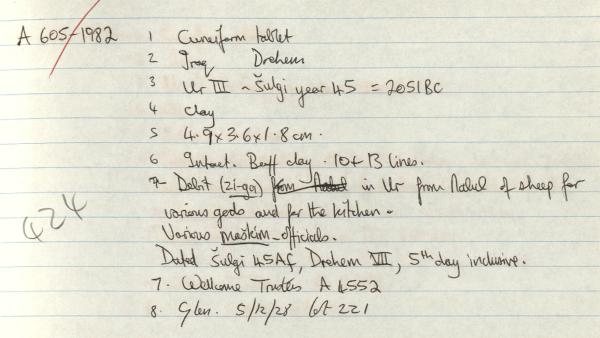 A 605-1982 1 Cuneiform tablet
2 Iraq Drehem
3 Ur III ~ Šulgi year 45 = 2051BC
4 clay
5 4.9 x 3.6 x 1.8 cm.
6 Intact. Buff clay. 10 + 13 lines.
7 Debit (zi-ga) from Nalul in Ur from Nalul of sheep for
various gods and for the kitchen.
424
Various meškim-officials.
Dated Šulgi 45Af, Drehem VII, 5th day inclusive.
7. Wellcome Trustees A 4552
8. Glen. 5/12/28 lot 221